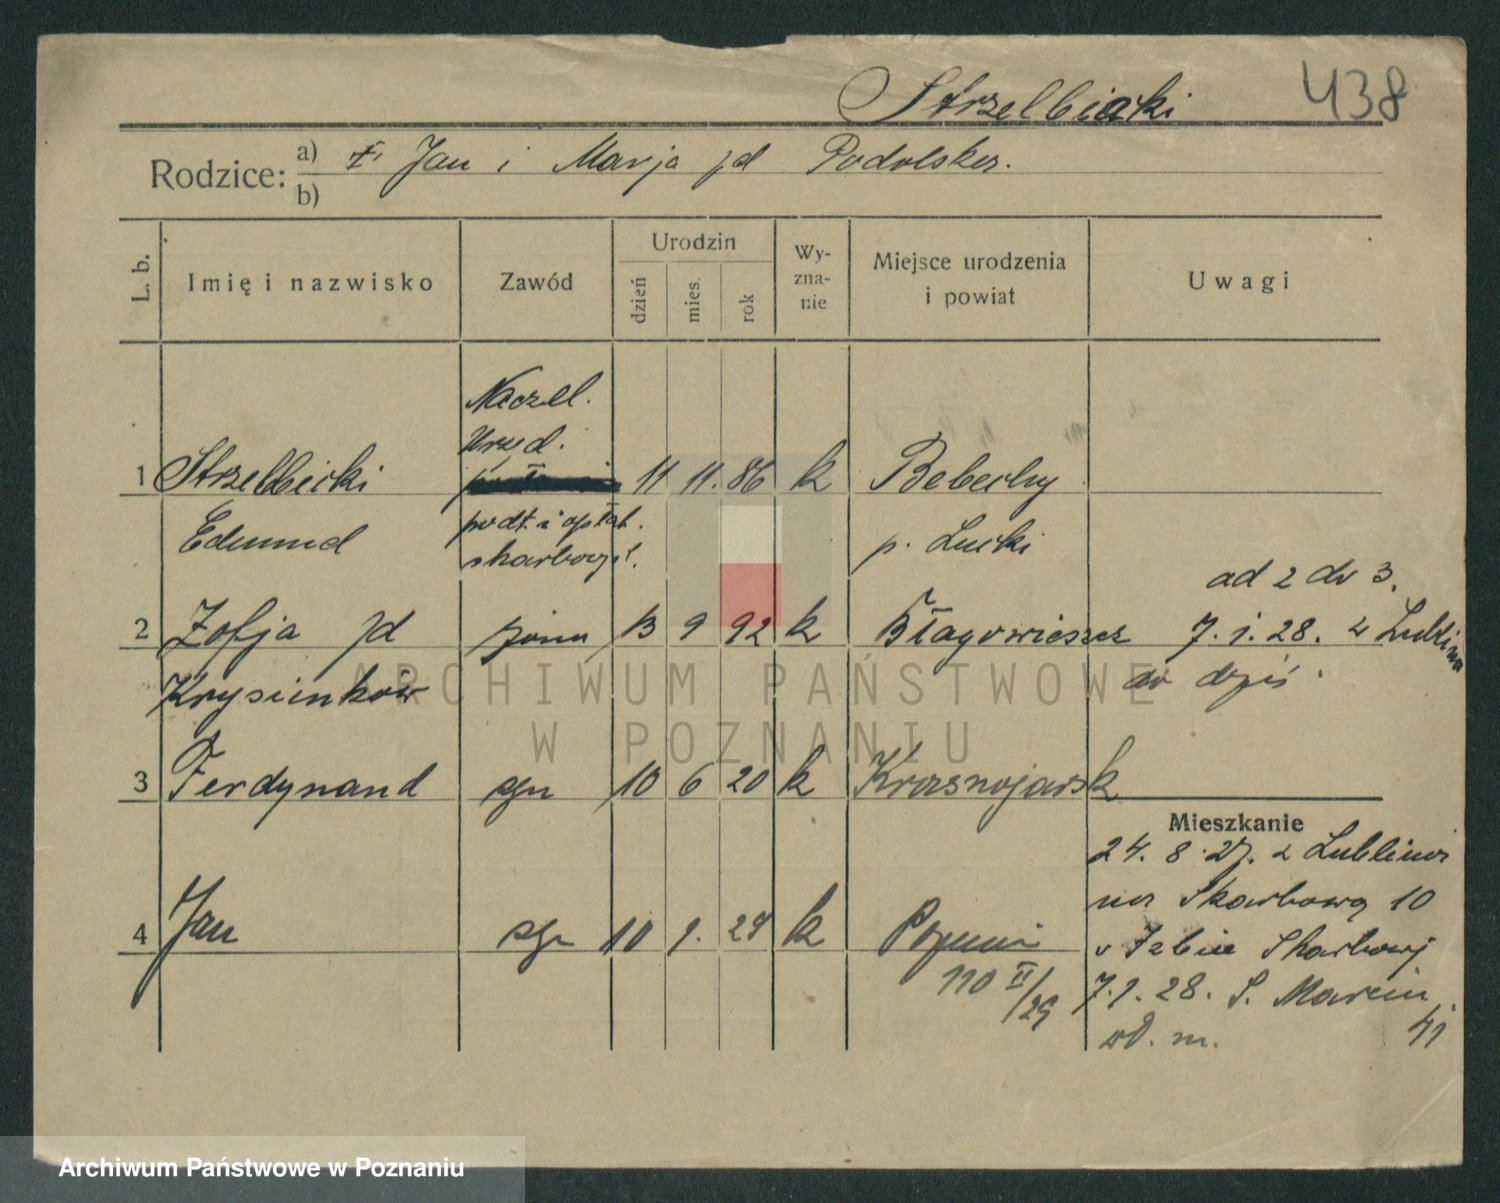 Strzelbicki 438
Rodzice: a) Jan i Marja zd Podolska.
b)
L. b. Imię i nazwisko Zawód Urodzin dzień mies. rok Wy-zna-nie Miejsce urodzenia i powiat Uwagi
Naczel.
Urzęd.
1 Strzelbicki 11 11. 86 k
Edmund podt. i opłat. p. Łucki
skarbowych.
ad 2 do 3.
2 Zofja zd żona 13 9 92 k Błagowieszcz 7. 1. 28. z Lublina
Krysienkow do dziś
3 Ferdynand syn 10 6 20 k Krasnojarsk
Mieszkanie
24. 8. 27. z Lublina
na Skarbową 10
4 Jan syn 10 1. 29 k Poznań
w Izbie Skarbowej
110 II/29 7. 1. 28. S. Marcin 41
wł. m.
ARCHIWUM PAŃSTWOWE
W POZNANIU
Archiwum Państwowe w Poznaniu